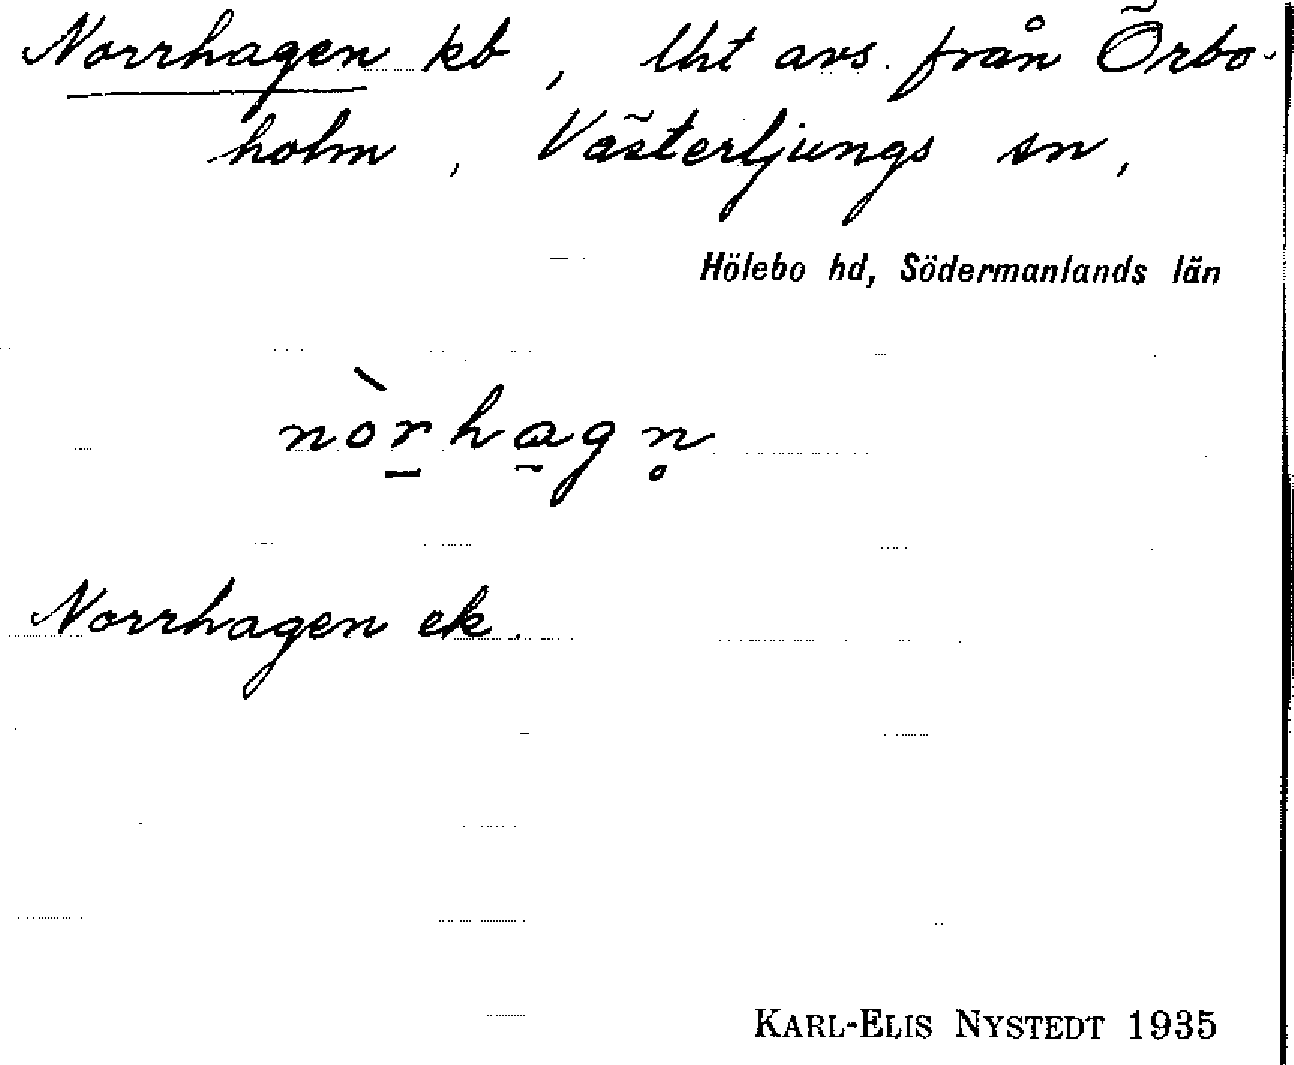 Norrhagen kb, lht avs. från Örbo-
holm, Västerljungs sn,
Hölebo hd, Södermanlands län
nòr̠ha̰gn̥
Norrhagen ek.
KARL-ELIS NYSTEDT 1935